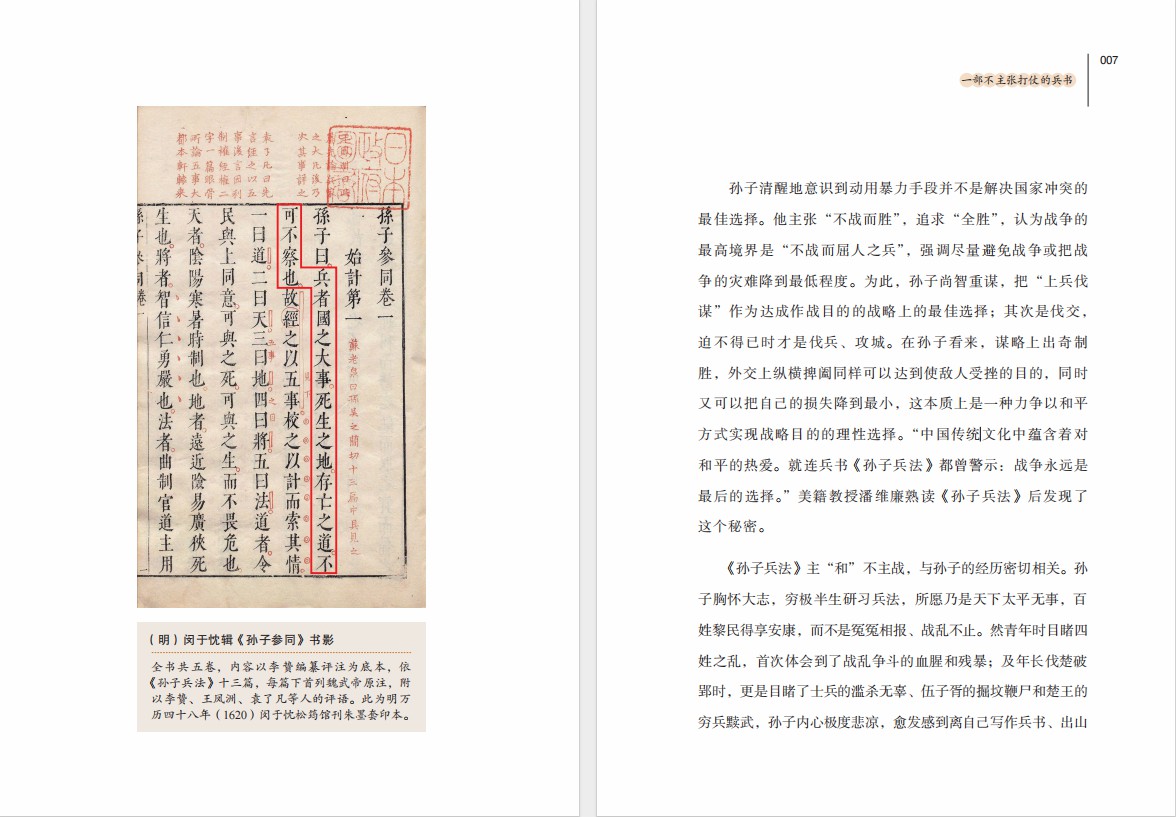 孫子參同卷一
始計第一
孫子曰兵者國之大事死生之地存亡之道不
可不察也故經之以五事校之以計而索其情
一曰道二曰天三曰地四曰將五曰法道者令
民與上同意可與之死可與之生而不畏危也
天者陰陽寒暑時制也地者遠近險易廣狹死
生也將者智信仁勇嚴也法者曲制官道主用
（明）闵于忱辑《孙子参同》书影
全书共五卷，内容以李贽编纂评注为底本，依
《孙子兵法》十三篇，每篇下首列魏武帝原注，附
以李贽、王凤洲、袁了凡等人的评语。此为明万
历四十八年（1620）闵于忱松筠馆刊朱墨套印本。
007
一部不主张打仗的兵书
孙子清醒地意识到动用暴力手段并不是解决国家冲突的
最佳选择。他主张“不战而胜”，追求“全胜”，认为战争的
最高境界是“不战而屈人之兵”，强调尽量避免战争或把战
争的灾难降到最低程度。为此，孙子尚智重谋，把“上兵伐
谋”作为达成作战目的的战略上的最佳选择；其次是伐交，
迫不得已时才是伐兵、攻城。在孙子看来，谋略上出奇制
胜，外交上纵横捭阖同样可以达到使敌人受挫的目的，同时
又可以把自己的损失降到最小，这本质上是一种力争以和平
方式实现战略目的的理性选择。“中国传统文化中蕴含着对
和平的热爱。就连兵书《孙子兵法》都曾警示：战争永远是
最后的选择。”美籍教授潘维廉熟读《孙子兵法》后发现了
这个秘密。
《孙子兵法》主“和”不主战，与孙子的经历密切相关。孙
子胸怀大志，穷极半生研习兵法，所愿乃是天下太平无事，百
姓黎民得享安康，而不是冤冤相报、战乱不止。然青年时目睹四
姓之乱，首次体会到了战乱争斗的血腥和残暴；及年长伐楚破
郢时，更是目睹了士兵的滥杀无辜、伍子胥的掘坟鞭尸和楚王的
穷兵黩武，孙子内心极度悲凉，愈发感到离自己写作兵书、出山